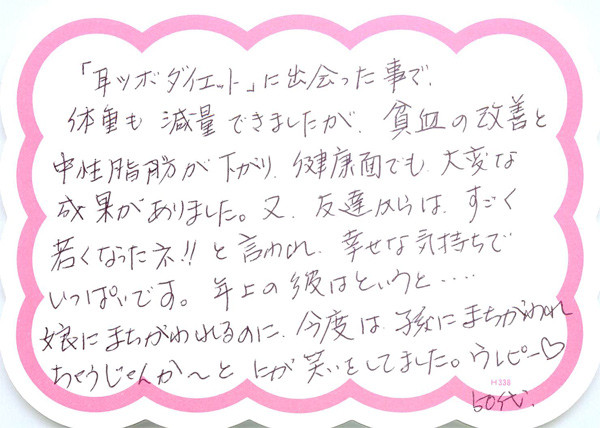 「耳ツボダイエット」に出会った事で、
体重も 減量できましたが、貧血の改善と
中性脂肪が下がり、健康面でも、大変な
成果がありました。又、友達からは、すごく
若くなったネ!!と言われ、幸せな気持ちで
いっぱいです。年上の彼はというと‥‥
娘にまちがわれるのに、今度は、孫にまちがわれ
ちゃうじゃんか〜と にが笑いをしてました。ウレピー♡
H336
50代、